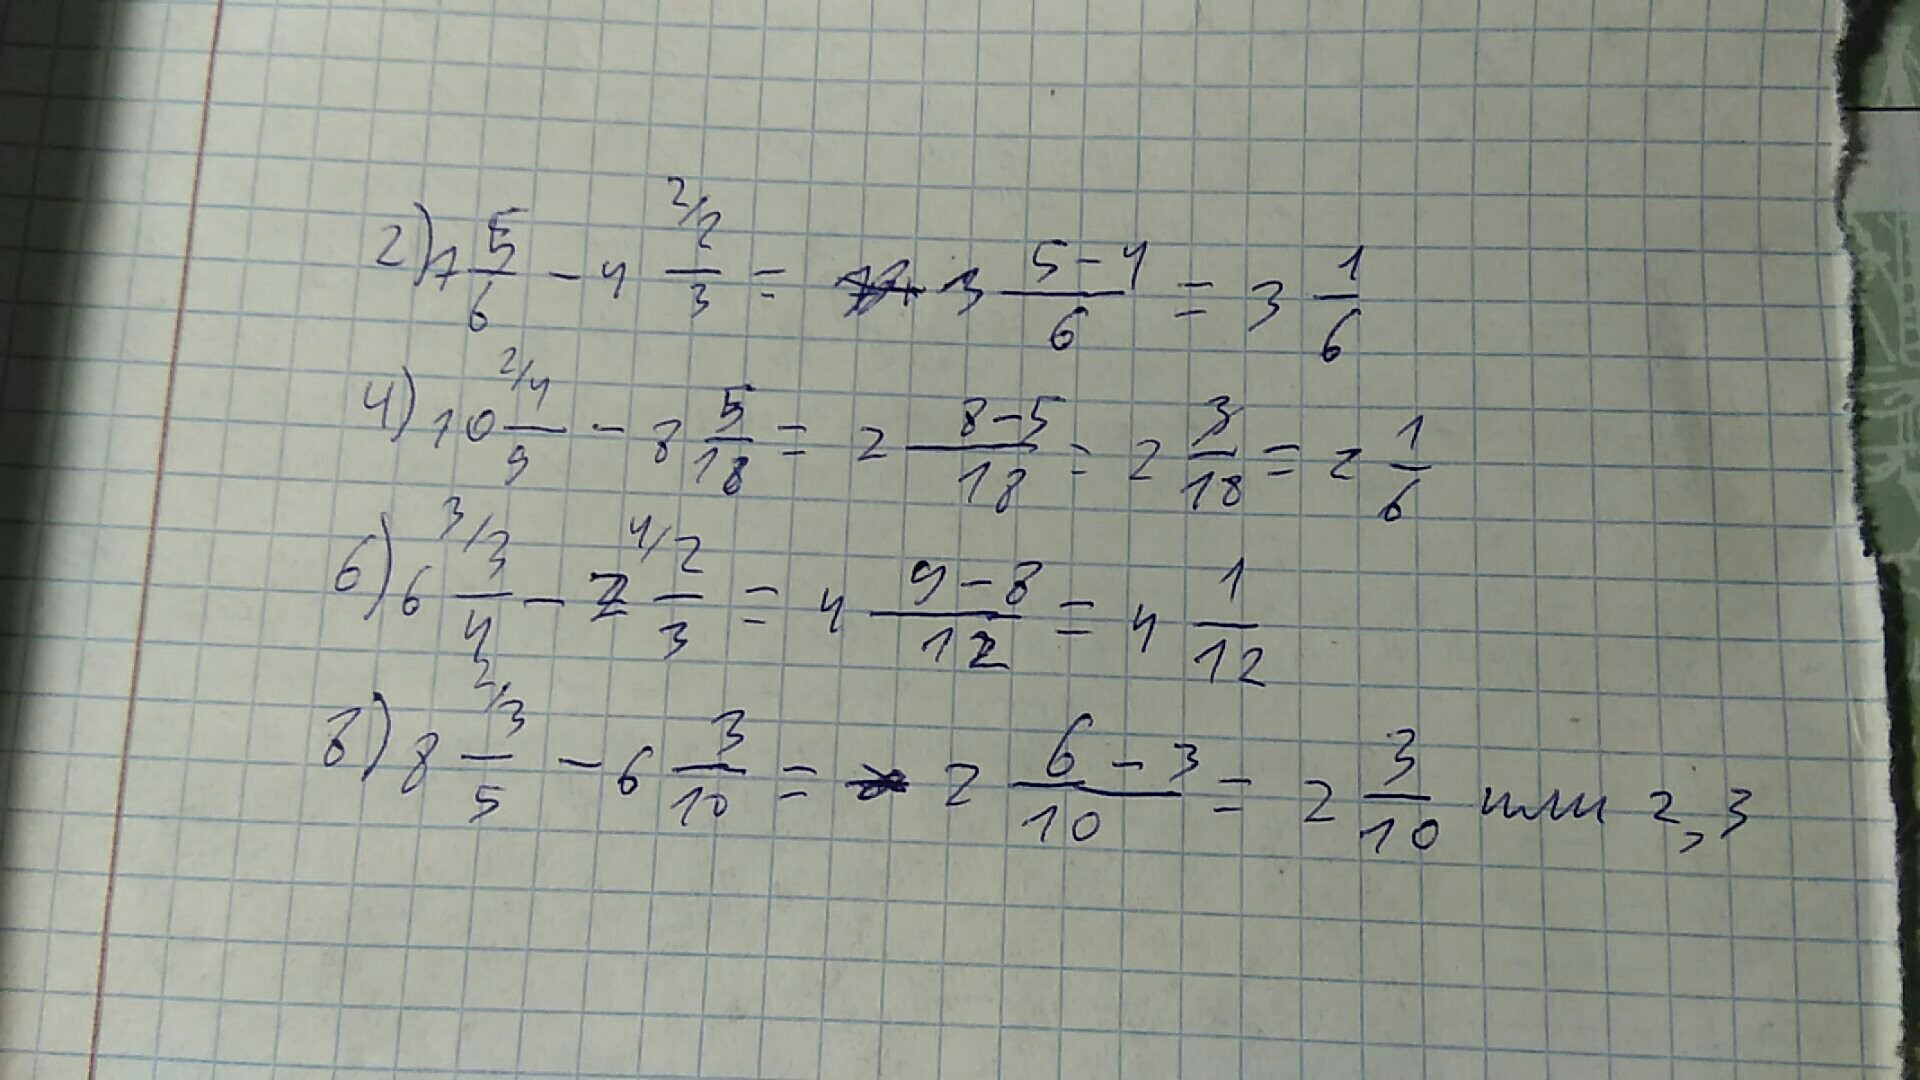 2) 7 5/6 - 4 2/ 2/3 = 3 (5-4)/6 = 3 1/6
4) 10 2/ 4/9 - 8 5/18 = 2 (8-5)/18 = 2 3/18 = 2 1/6
6) 6 3/ 3/4 - 2 4/ 2/3 = 4 (9-8)/12 = 4 1/12
8) 8 2/ 3/5 - 6 3/10 = 2 (6-3)/10 = 2 3/10 или 2,3